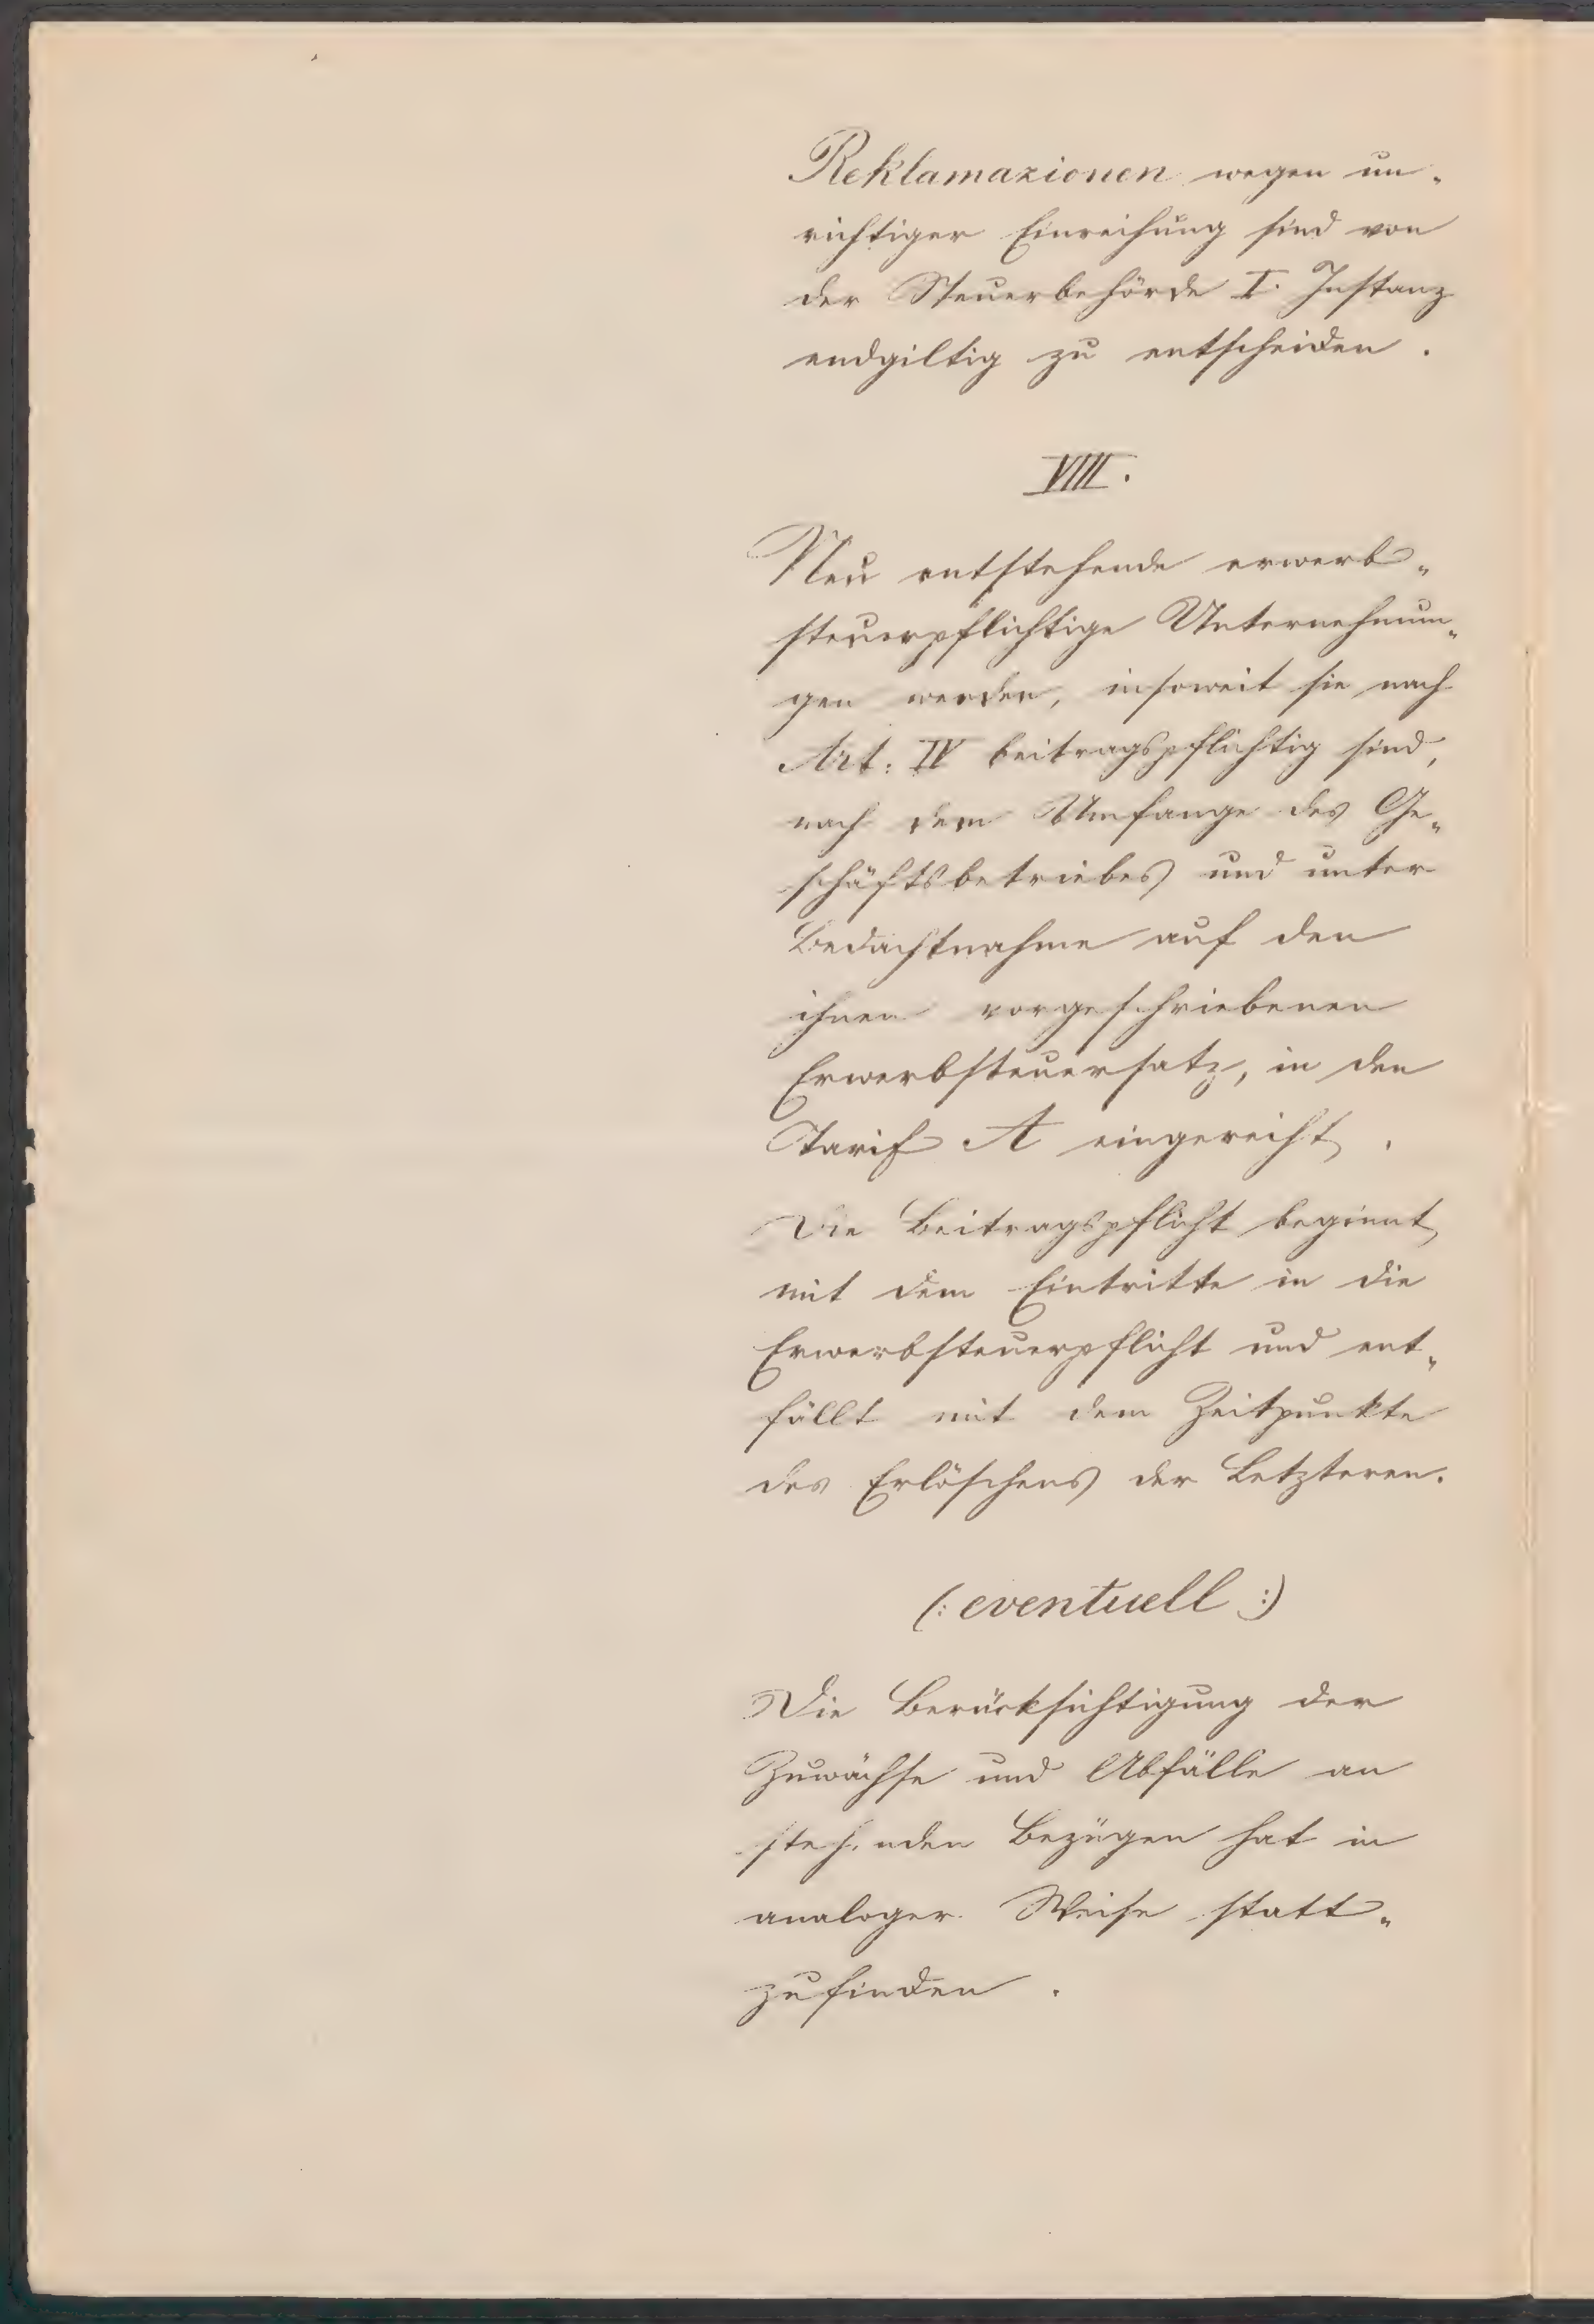 Reklamazionen wegen un„
richtiger Einreihung sind von
der Steuerbehörde I. Instanz
endgiltig zu entscheiden.
VIII.
Neu entstehende erwerb„
steuerpflichtige Unternehmun„
gen werden, insoweit sie nach
Art: IV beitragspflichtig sind,
nach dem Umfange des Ge„
schäftsbetriebes und unter
Bedachtnahme auf den
ihnen vorgeschriebenen
Erwerbsteuersatz, in den
Tarif A eingereiht.
Die Beitragspflicht beginnt
mit dem Eintritte in die
Erwerbsteuerpflicht und ent„
fällt mit dem Zeitpunkte
des Erlöschens der Letzteren.
(: eventuell :)
Die Berücksichtigung der
Zuwächse und Abfälle an
stehenden Bezügen hat in
analoger Weise statt„
zufinden.